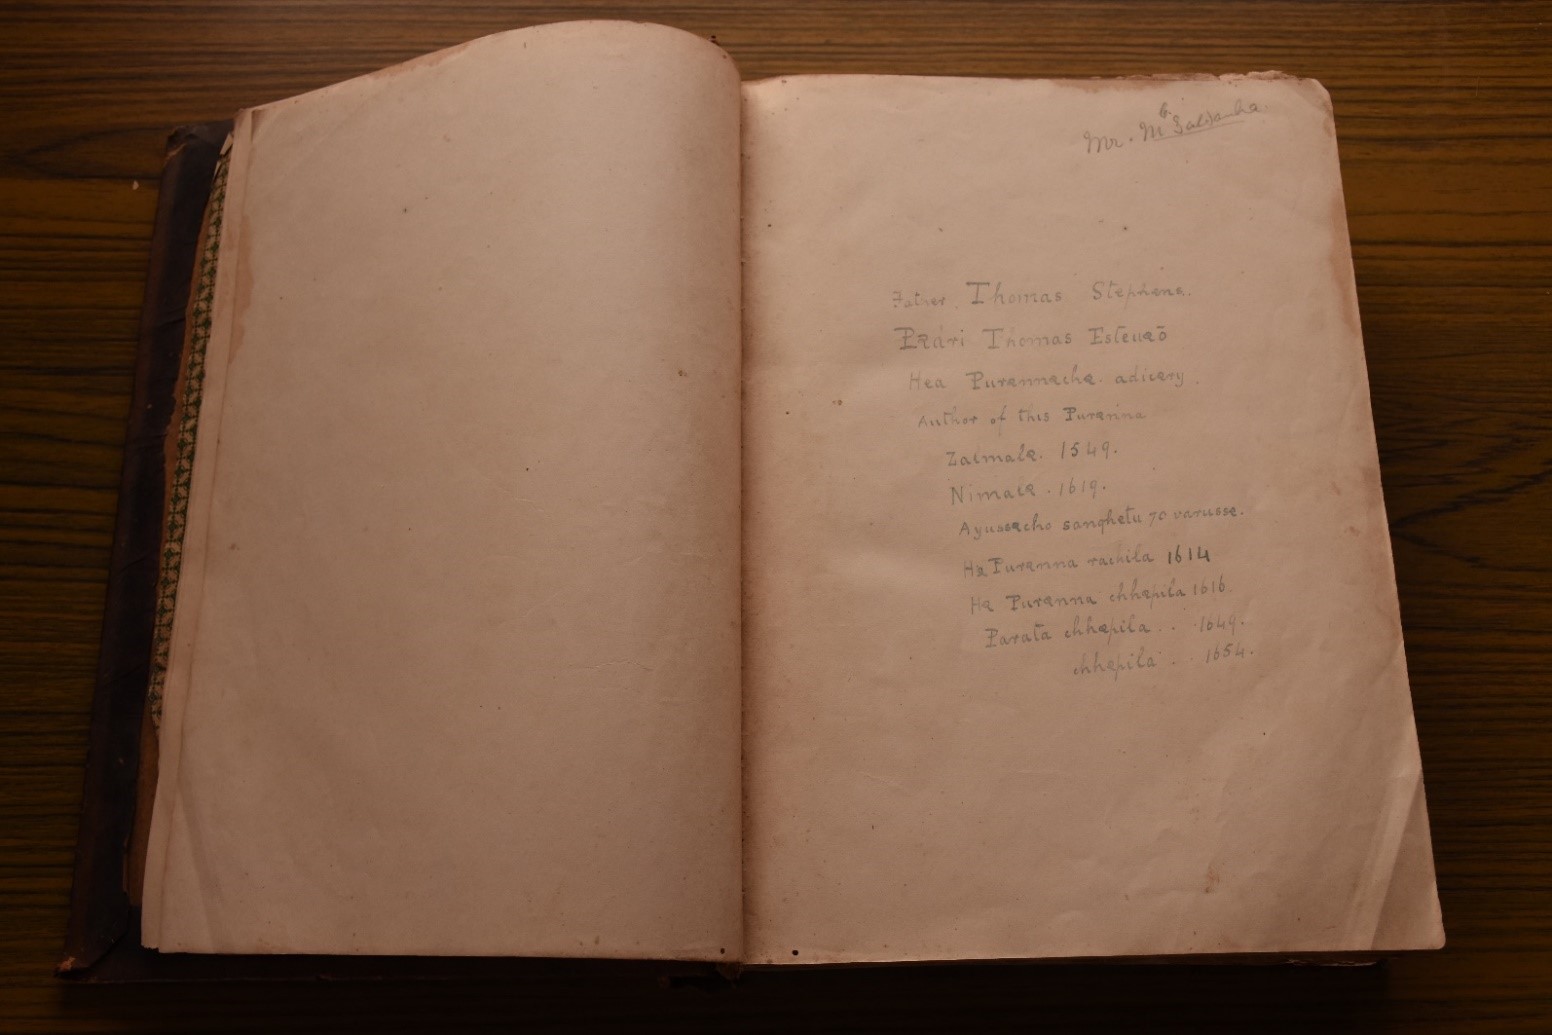 Mr. Mc Saldanha.
Father. Thomas Stephens.
Padri Thomas Estevaõ
Hea Purannacha. adicary.
Author of this Puranna
Zalmala. 1549.
Nimala. 1619.
Ayussacho sanqhetu 70 varussa.
Ha Puranna rachila 1614
Ha Puranna chhapila 1616.
Parata chhapila . . 1649.
chhapila . . 1654.